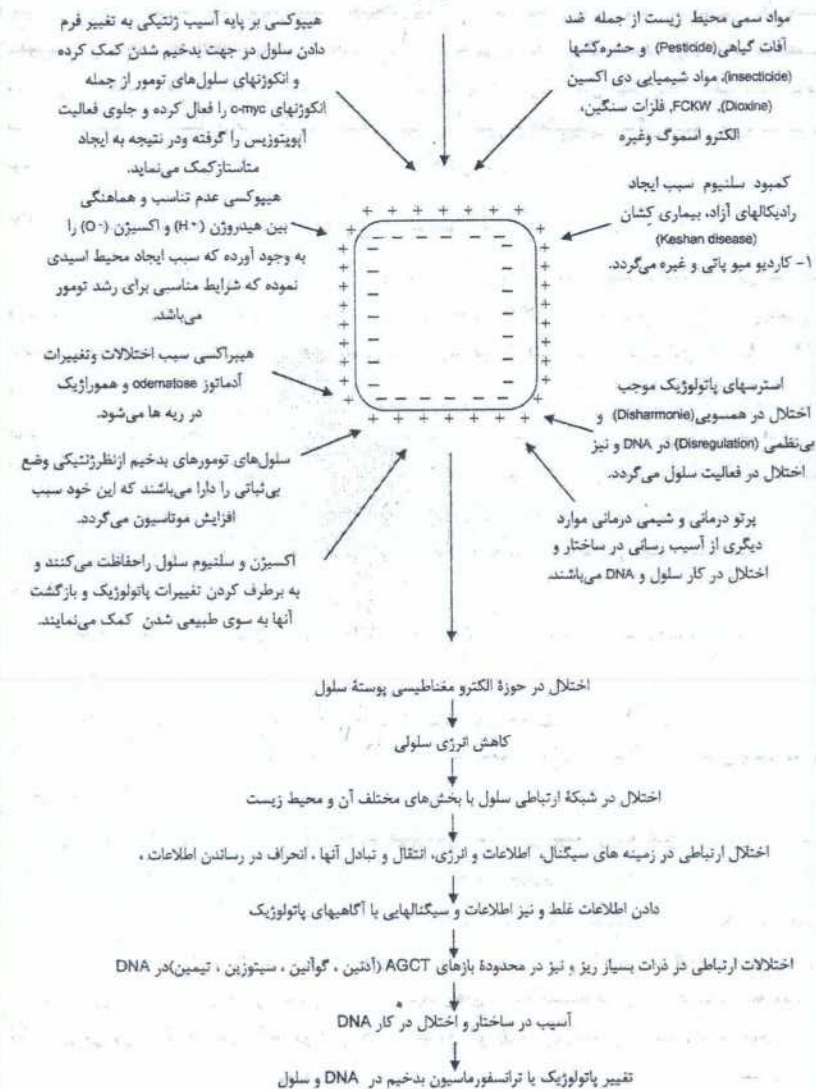 مواد سمی محیط زیست از جمله ضد
آفات گیاهی(Pesticide) و حشره‌کشها
(insecticide)، مواد شیمیایی دی اکسین
(Dioxine)، FCKW, فلزات سنگین،
الکترو اسموگ وغیره
کمبود سلنیوم سبب ایجاد
رادیکالهای آزاد، بیماری کِشان
(Keshan disease)
۱- کاردیو میو پاتی و غیره می‌گردد.
استرسهای پاتولوژیک موجب
اختلال در همسویی(Disharmonie) و
بی‌نظمی (Disregulation) در DNA و نیز
اختلال در فعالیت سلول می‌گردد.
پرتو درمانی و شیمی درمانی موارد
دیگری از آسیب رسانی در ساختار و
اختلال در کار سلول و DNA می‌باشند.
هیپوکسی بر پایه آسیب ژنتیکی به تغییر فرم
دادن سلول در جهت بدخیم شدن کمک کرده
و انکوژنهای سلول‌های تومور از جمله
انکوژنهای c-myc را فعال کرده و جلوی فعالیت
آپوپتوزیس را گرفته ودر نتیجه به ایجاد
متاستازکمک می‌نماید.
هیپوکسی عدم تناسب و هماهنگی
بین هیدروژن (H+) و اکسیژن (O-) را
به وجود آورده که سبب ایجاد محیط اسیدی
نموده که شرایط مناسبی برای رشد تومور
می‌باشد.
هیپراکسی سبب اختلالات وتغییرات
آدماتوز odematose و هموراژیک
در ریه ها می‌شود.
سلول‌های تومورهای بدخیم ازنظرژنتیکی وضع
بی‌ثباتی را دارا می‌باشند که این خود سبب
افزایش موتاسیون می‌گردد.
اکسیژن و سلنیوم سلول راحفاظت می‌کنند و
به برطرف کردن تغییرات پاتولوژیک و بازگشت
آنها به سوی طبیعی شدن کمک می‌نمایند.
+ + + + + + + +
- - - - - - -
+ + + + + + + +
اختلال در حوزهٔ الکترو مغناطیسی پوستهٔ سلول
کاهش انرژی سلولی
اختلال در شبکهٔ ارتباطی سلول با بخش‌های مختلف آن و محیط زیست
اختلال ارتباطی در زمینه های سیگنال، اطلاعات و انرژی، انتقال و تبادل آنها ، انحراف در رساندن اطلاعات .
دادن اطلاعات غلط و نیز اطلاعات و سیگنالهایی با آگاهیهای پاتولوژیک
اختلالات ارتباطی در ذرات بسیار ریز و نیز در محدودهٔ بازهای AGCT (آدنین ، گوآنین ، سیتوزین ، تیمین)در DNA
آسیب در ساختار و اختلال در کار DNA
تغییر پاتولوژیک یا ترانسفورماسیون بدخیم در DNA و سلول